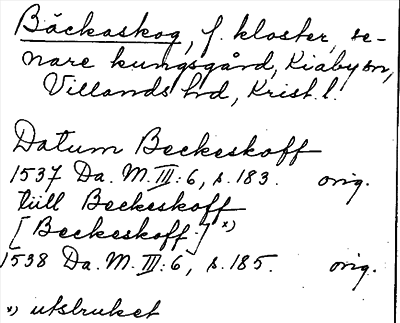 Bäckaskog, f. kloster, se-
nare kungsgård, Kiaby sn,
Villands hd, Krist. l.
Datum Beckeskoff
1537 Da. M. III: 6, s. 183. orig.
tüll Beckeskoff
[Beckeskoff.] *)
1538 Da. M. III: 6, s. 185. orig.
*) utstruket